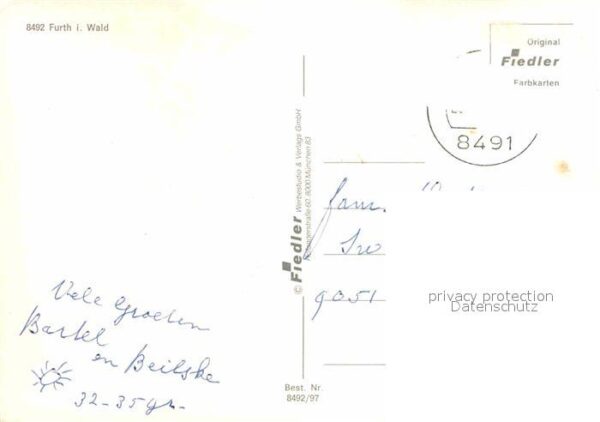 8492 Furth i. Wald
Original
Fiedler
Farbkarten
8491
© Fiedler Werbestudio & Verlags GmbH
8000 München 83
fam.
9051
privacy protection
Datenschutz
Vele Groeten
Bartel
en Beitske
32-35 gr.
Best. Nr.
8492/97